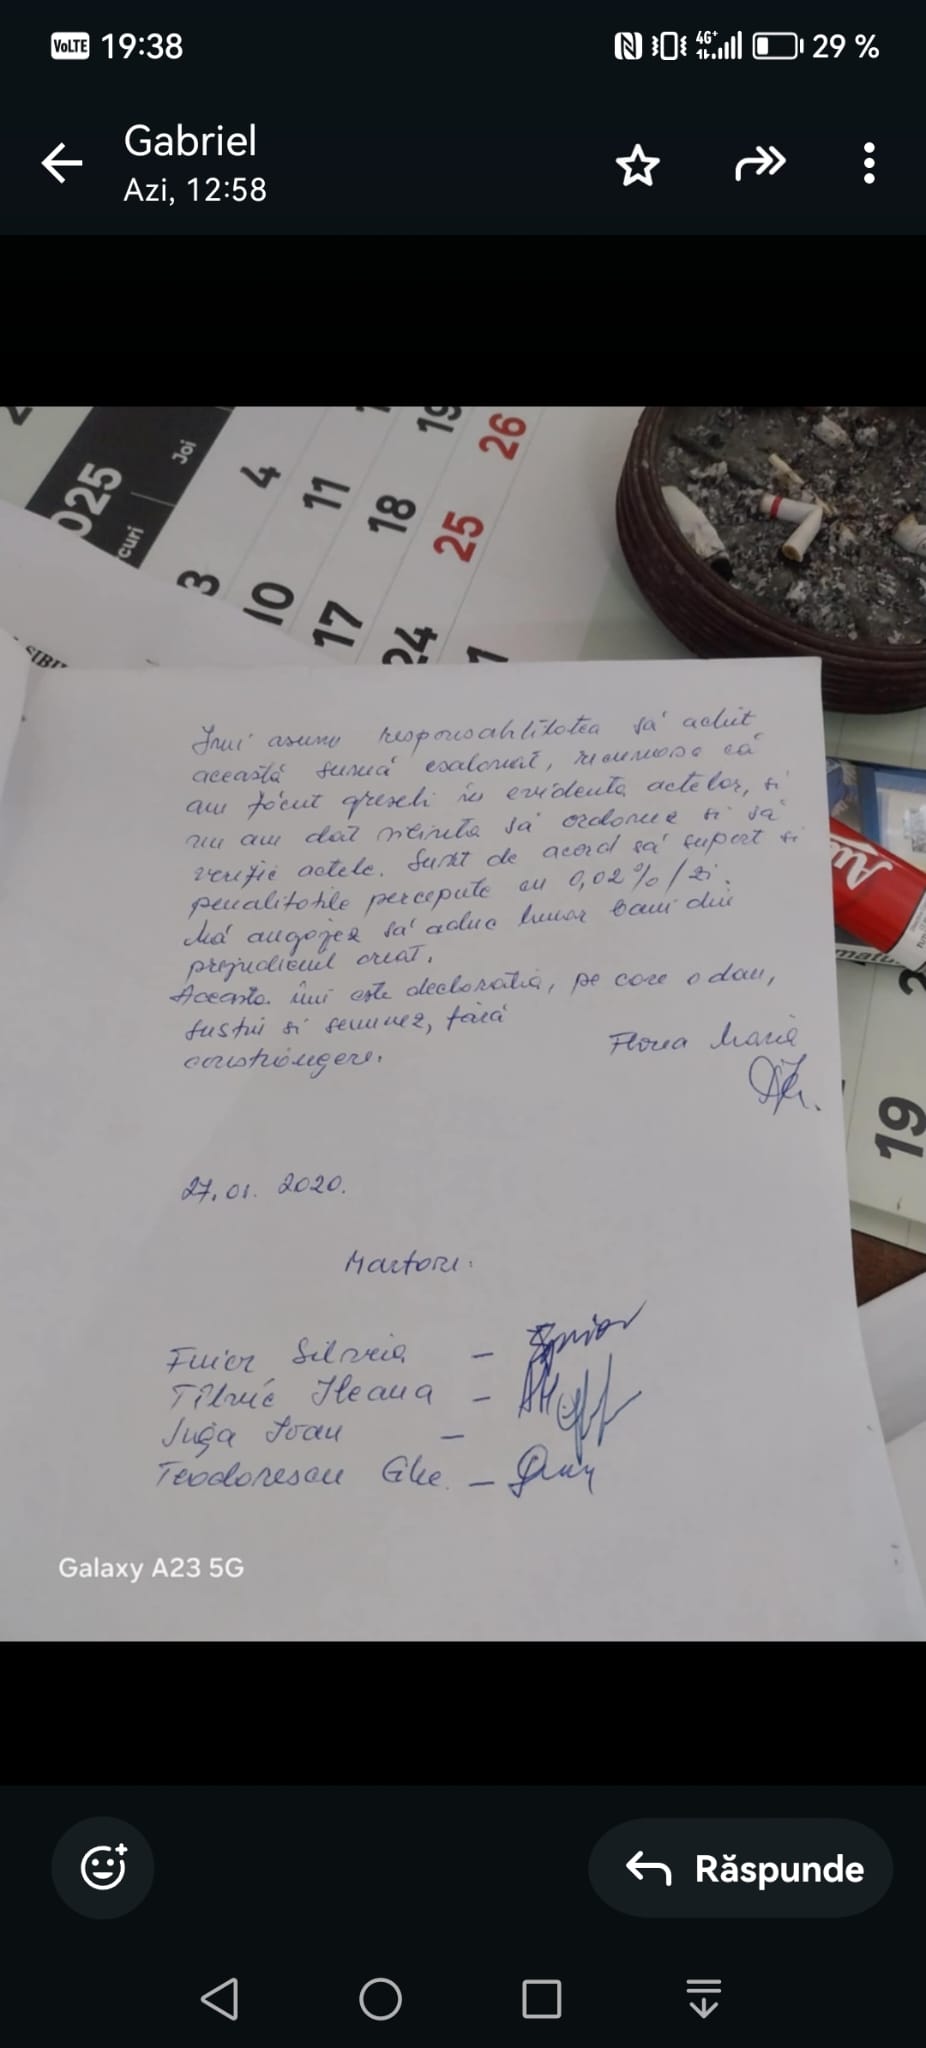 VoLTE 19:38 4G+ 29 %
Gabriel
Azi, 12:58
025
Joi
curi
4
11
18
19
26
25
3
10
17
24
1
SIBI
Îmi asum responsabilitatea să achit
această sumă esalonat, recunosc că
am făcut greseli în evidenta actelor, si
nu am dat silinta să ordonez si să
verific actele. Sunt de acord să suport si
penalitatile percepute cu 0,02%/zi.
Mă angajez să aduc lunar bani din
prejudiciul creat.
Aceasta îmi este declaratia, pe care o dau,
sustin si semnez, fără
constrângere.
Florea Maria
27.01.2020.
Martori:
Fuior Silvia -
Tilvic Ileana -
Iuga Ioan -
Teodorescu Ghe. -
19
2
Galaxy A23 5G
Răspunde